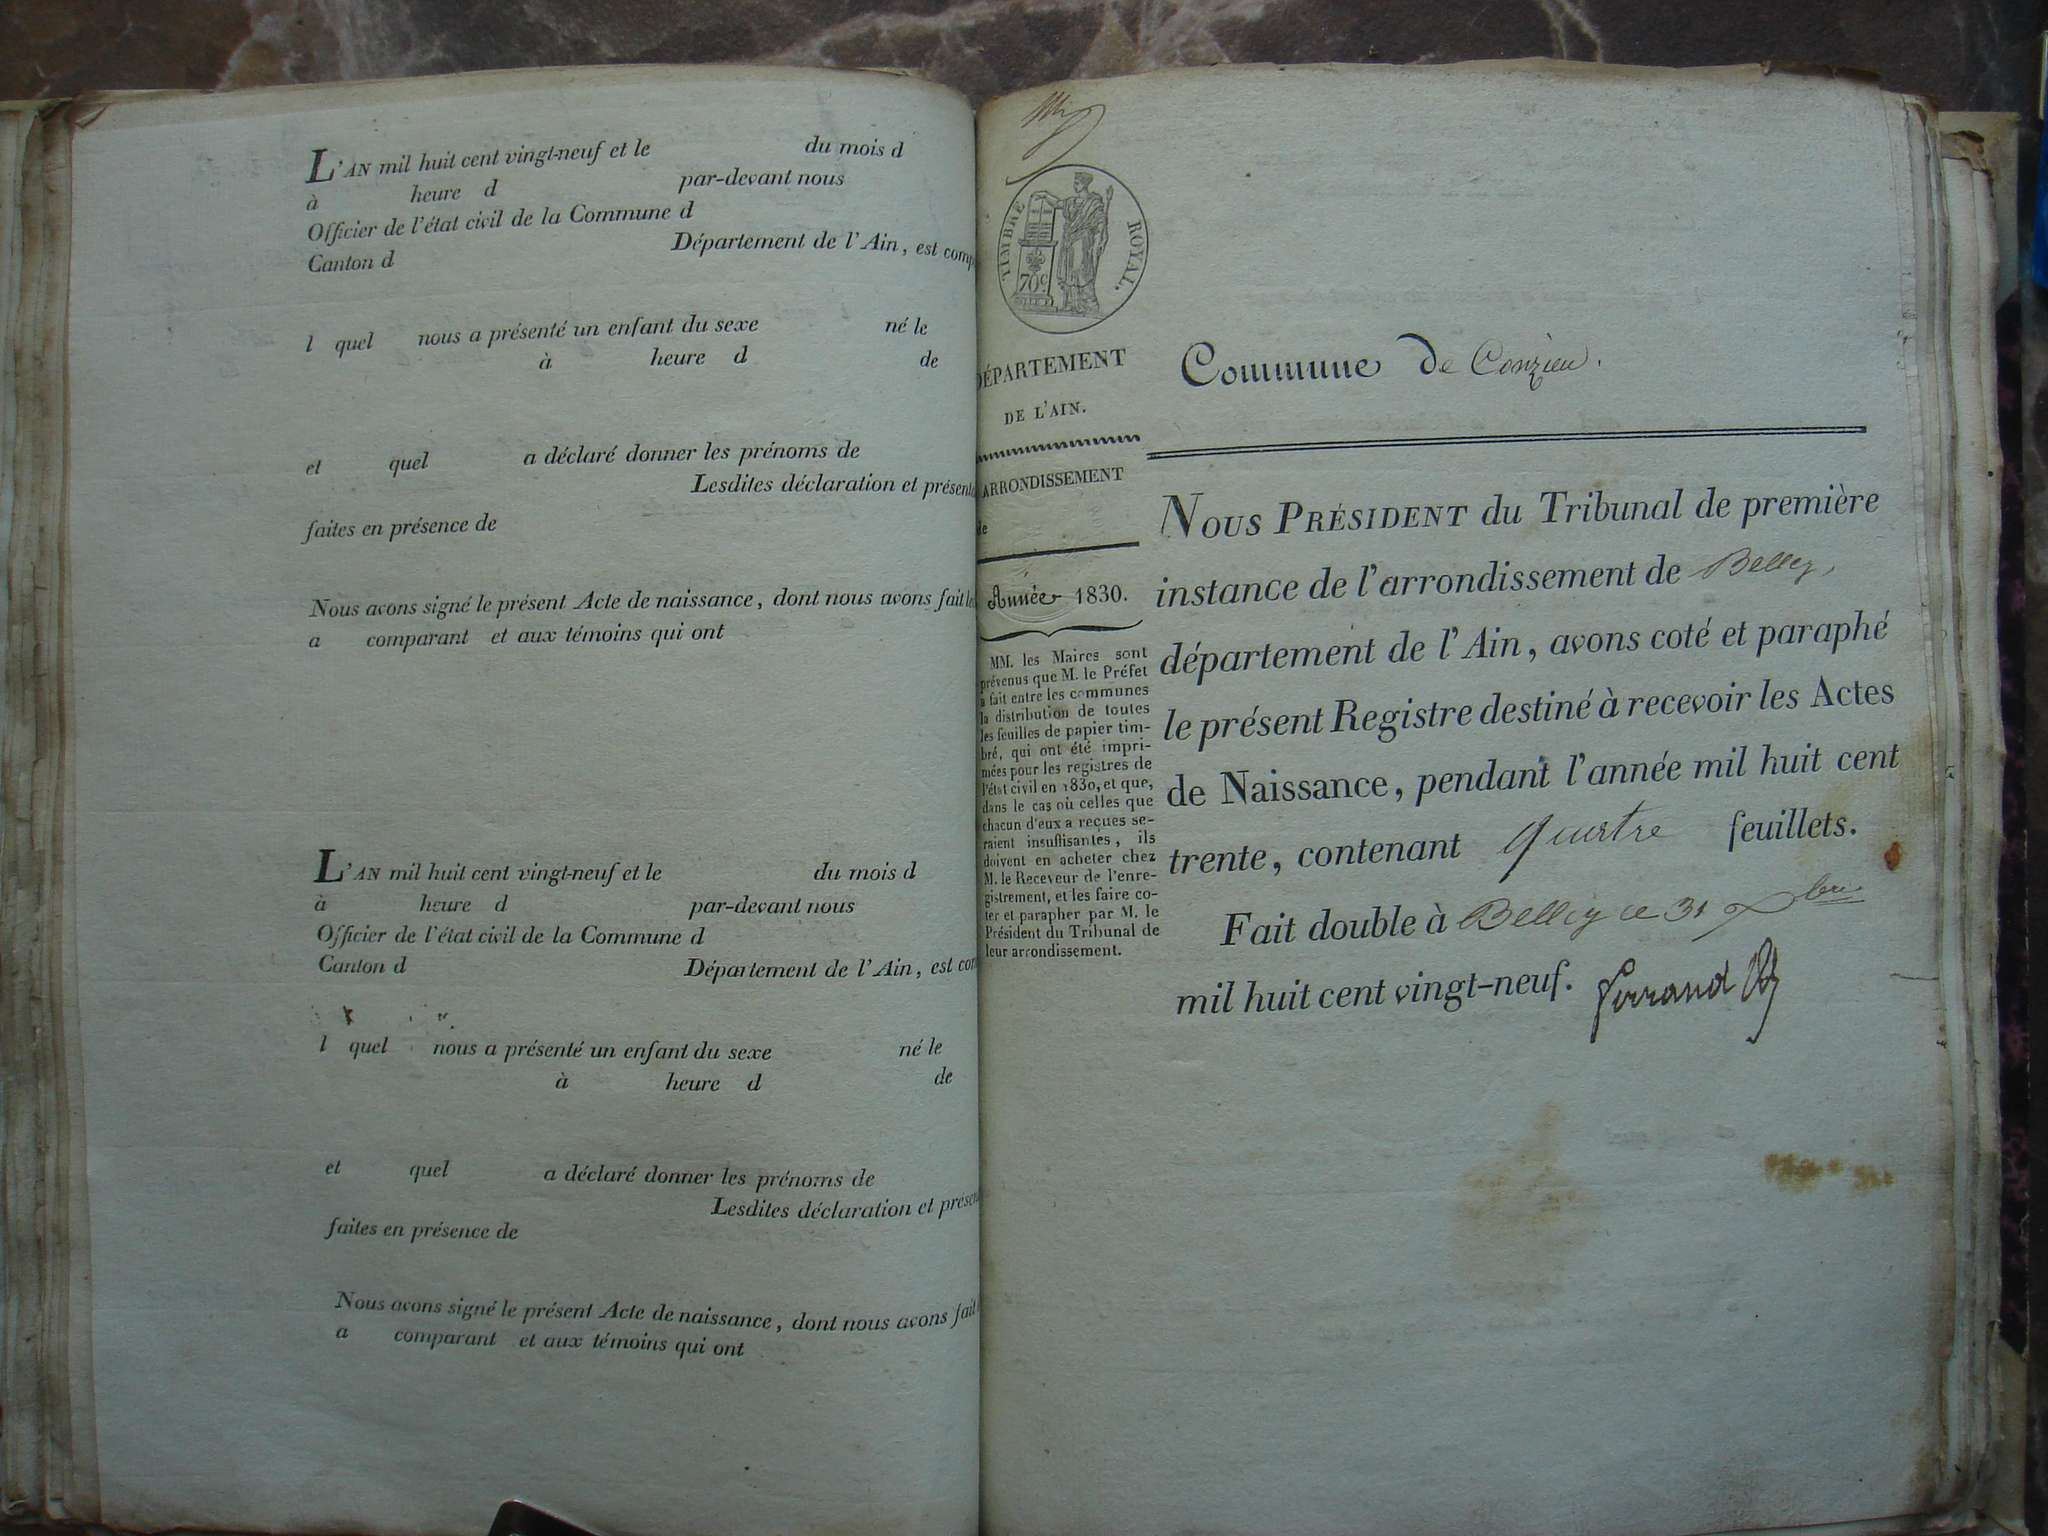 L'AN mil huit cent vingt-neuf et le du mois d
à heure d par-devant nous
Officier de l'état civil de la Commune d
Canton d Département de l'Ain, est comp
l quel nous a présenté un enfant du sexe né le
à heure d de
et quel a déclaré donner les prénoms de
Lesdites déclaration et présenta
faites en présence de
Nous avons signé le présent Acte de naissance, dont nous avons fait le
a comparant et aux témoins qui ont
L'AN mil huit cent vingt-neuf et le du mois d
à heure d par-devant nous
Officier de l'état civil de la Commune d
Canton d Département de l'Ain, est com
l quel nous a présenté un enfant du sexe né le
à heure d de
et quel a déclaré donner les prénoms de
Lesdites déclaration et présen
faites en présence de
Nous avons signé le présent Acte de naissance, dont nous avons fait
a comparant et aux témoins qui ont
TIMBRE ROYAL.
70 c
DÉPARTEMENT
DE L'AIN.
ARRONDISSEMENT
de
Année 1830.
MM. les Maires sont
prévenus que M. le Préfet
a fait entre les communes
la distribution de toutes
les feuilles de papier tim-
bré, qui ont été impri-
mées pour les registres de
l'état civil en 1830, et que,
dans le cas où celles que
chacun d'eux a reçues se-
raient insuffisantes, ils
doivent en acheter chez
M. le Receveur de l'enre-
gistrement, et les faire co-
ter et parapher par M. le
Président du Tribunal de
leur arrondissement.
Commune de Conzieu.
NOUS PRÉSIDENT du Tribunal de première
instance de l'arrondissement de Belley,
département de l'Ain, avons coté et paraphé
le présent Registre destiné à recevoir les Actes
de Naissance, pendant l'année mil huit cent
trente, contenant quatre feuillets.
Fait double à Belley ce 31 Xbre
mil huit cent vingt-neuf. Ferrand